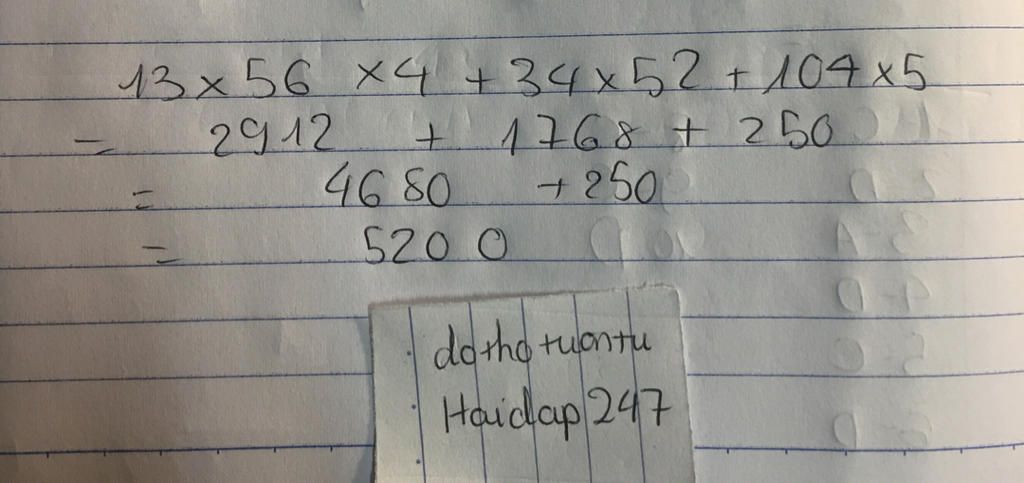 13 × 56 × 4 + 34 × 52 + 104 × 5
= 2912 + 1768 + 250
= 4680 + 250
= 5200
dothotuontu
Hoidap247